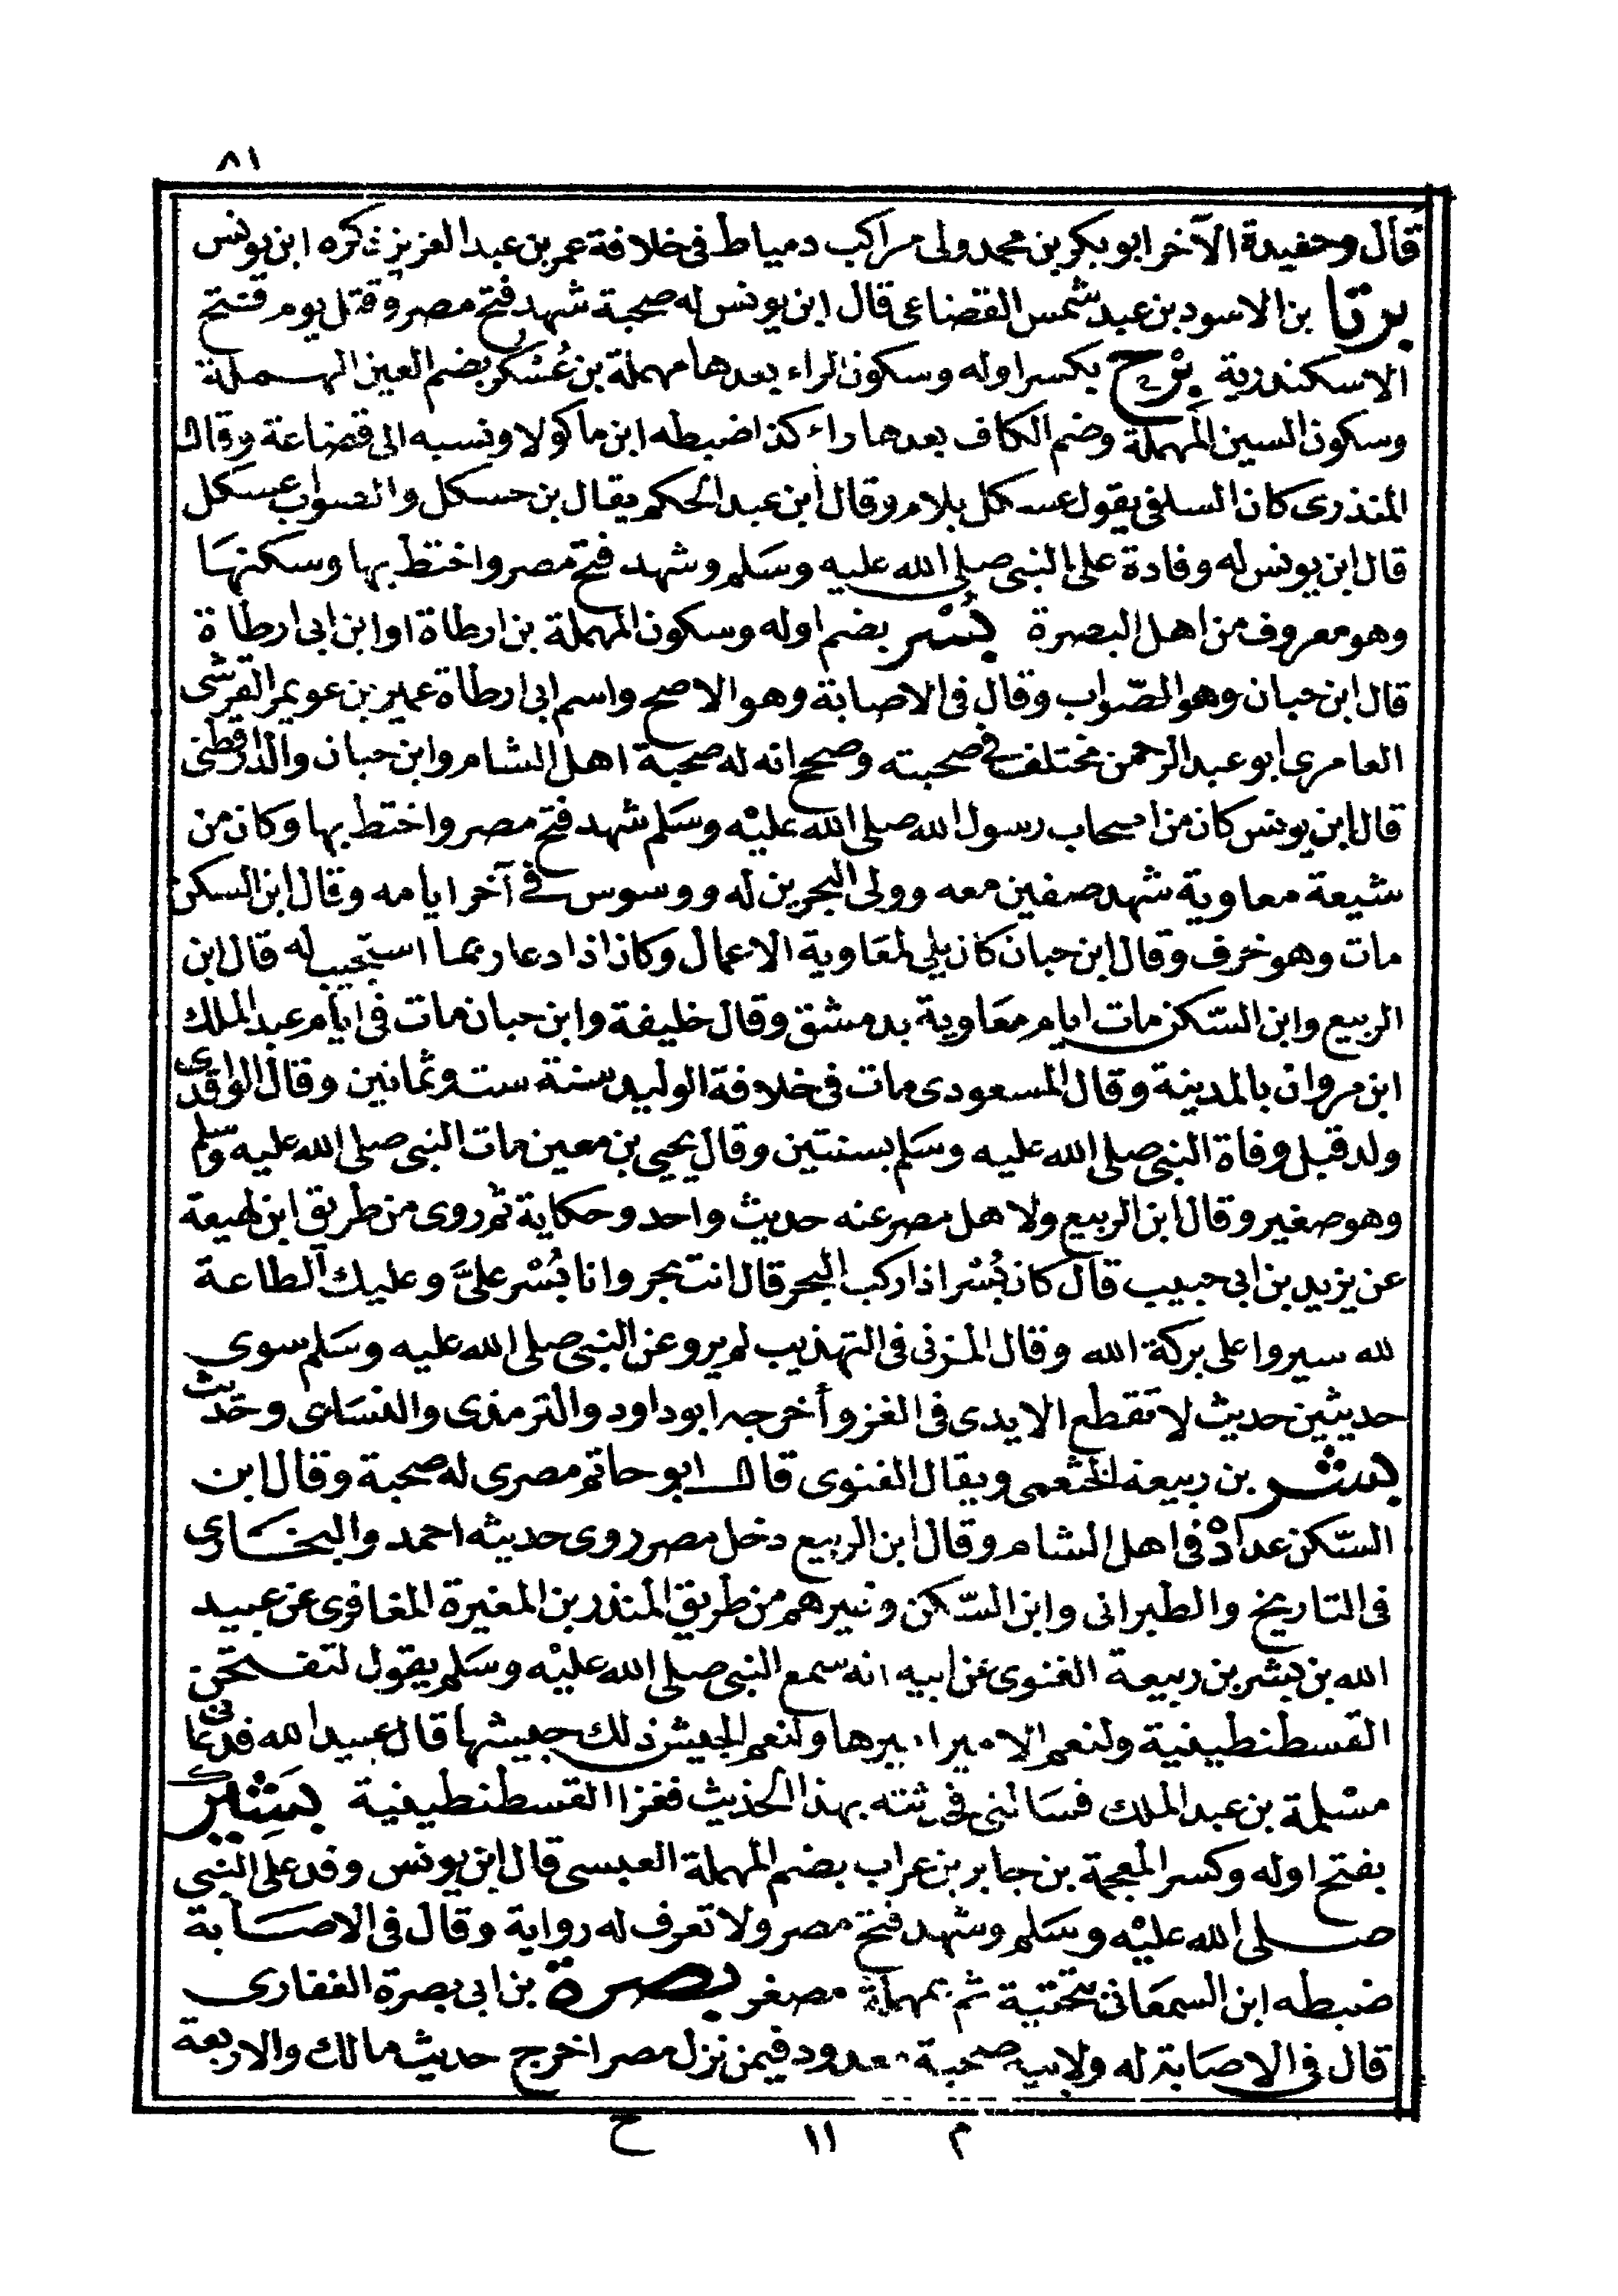 ٨١
قال وحفيدة الآخر ابو بكر بن محمد ولى مراكب دمياط فى خلافة عمر بن عبد العزيز ذكره ابن يونس
برتا بن الاسود بن عبد شمس القضاعى قال ابن يونس له صحبة شهد فتح مصر وقتل يوم فتح
الاسكندرية برْح بكسر اوله وسكون الراء بعدها مهملة بن عُسْكر بضم العين المهملة
وسكون السين المهملة وضم الكاف بعدها راء كذا ضبطه ابن ماكولا ونسبه الى قضاعة وقال
المنذرى كان السلفى يقول عسكل بلام وقال ابن عبد الحكم يقال بن حسكل والصواب عسكل
قال ابن يونس له وفادة على النبى صلى الله عليه وسلم وشهد فتح مصر واختط بها وسكنها
وهو معروف من اهل البصرة بُسْر بضم اوله وسكون المهملة بن ارطاة او ابن ابى ارطاة
قال ابن حبان وهو الصّواب وقال فى الاصابة وهو الاصح واسم ابى ارطاة عمير بن عويمر القرشى
العامرى ابو عبد الرحمن مختلف فى صحبته وصحح انه له صحبة اهل الشام وابن حبان والدارقطنى
قال ابن يونس كان من اصحاب رسول الله صلى الله عليْه وسَلم شهد فتح مصر واختط بها وكان من
شيعة معاوية شهد صفين معه وولى البحرين له ووسوس فى آخر ايامه وقال ابن السكن
مات وهو خرف وقال ابن حبان كان يلى لمعَاوية الاعمال وكان اذا دعا ربما استجيب له قال ابن
الربيع وابن السّكن مات ايام معَاوية بدمشق وقال خليفة وابن حبان مات فى ايام عبد الملك
ابن مروان بالمدينة وقال المسعودى مات فى خلافة الوليد سنة ست وثمانين وقال الواقدى
ولد قبل وفاة النبى صلى الله عليه وسَلم بسنتين وقال يحيى بن معين مات النبى صلى الله عليه وسلم
وهو صغير وقال ابن الربيع ولاهل مصر عنه حديث واحد وحكاية ثم روى من طريق ابن لهيعة
عن يزيد بن ابى حبيب قال كان بُسْر اذا ركب البحر قال انت بحر وانا بُسْر علىَّ وعليك الطاعة
لله سيروا على بركة الله وقال المزنى فى التهذيب لم يرو عن النبى صلى الله عليه وسَلم سوى
حديثين حديث لا تقطع الايدى فى الغزو أخرجه ابو داود والترمذى والنسَائى وحديث
بشر بن ربيعة الخثعمى ويقال الغنوى قال ابو حاتم مصرى له صحبة وقال ابن
السّكن عدادهْ فى اهل الشام وقال ابن الربيع دخل مصر روى حديثه احمد والبخارى
فى التاريخ والطبرانى وابن السّكن وغيرهم من طريق المنذر بن المغيرة المغافرى عن عبيد
الله بن بشر بن ربيعة الغنوى عن ابيه انه سمع النبى صلى الله عليْه وسَلم يقول لتفتحن
القسطنطينية ولنعم الامير اميرها ولنعم الجيش ذلك جيشها قال عبيد الله فدعانى
مسْلمة بن عبد الملك فسَالنى فحدثته بهذا الحديث فغزا القسطنطينية بَشِير
بفتح اوله وكسر المعجمة بن جابر بن عراب بضم المهملة العبسى قال ابن يونس وفد على النبى
صلى الله عليْه وسَلم وشهد فتح مصر ولا تعرف له رواية وقال فى الاصَابة
ضبطه ابن السمعَانى بتحتية ثم بمهملة مصغر بصرة بن ابى بصرة الغفارى
قال فى الاصَابة له ولابيه صحبة معدود فيمن نزل مصر اخرج حديث مالك والاربعة
م ١١ ح